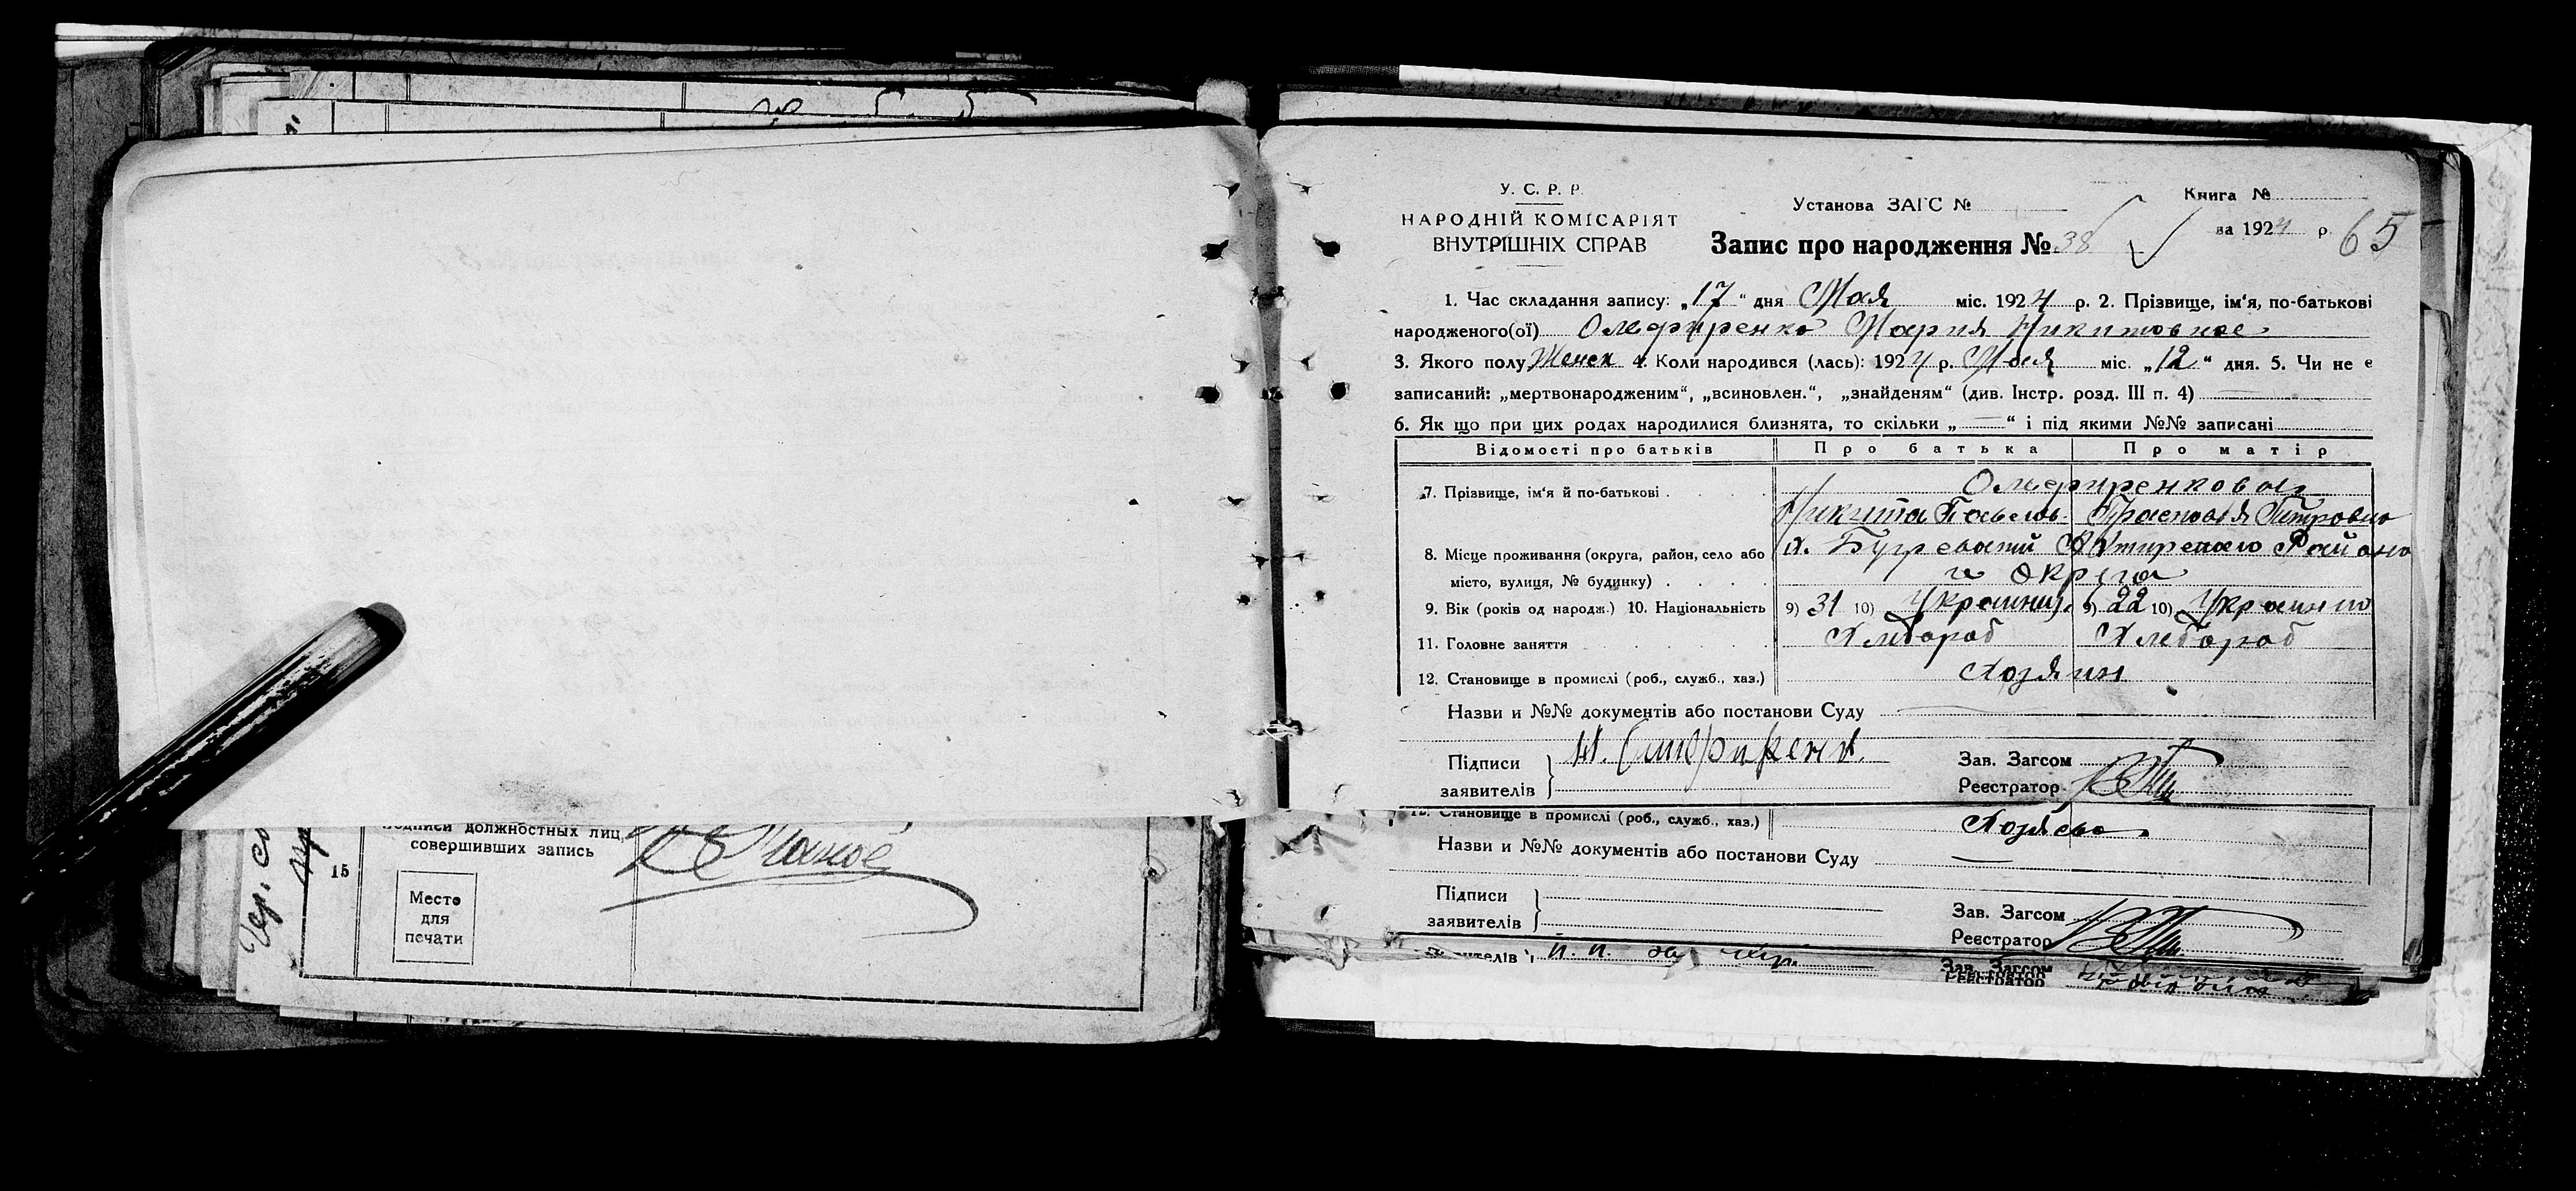 подписи должностных лиц,
совершивших запись
15
Место
для
печати
У. С. Р. Р.
НАРОДНІЙ КОМІСАРІЯТ
ВНУТРІШНІХ СПРАВ
Установа ЗАГС №
Книга №
за 1924 р.
65
Запис про народження № 38
1. Час складання запису: „17“ дня Мая міс. 1924 р. 2. Прізвище, ім'я, по-батькові
народженого(ої) Олефиренко Мария Никитовна
3. Якого полу Женск 4. Коли народився (лась): 1924 р. Мая міс. „12“ дня. 5. Чи не є
записаний: „мертвонародженим“, „всиновлен.“, „знайденям“ (див. Інстр. розд. III п. 4)
6. Як що при цих родах народилися близнята, то скільки „—“ і під якими №№ записані
Відомості про батьків Про батька Про матір
7. Прізвище, ім'я й по-батькові
Олефиренковы
Никита Павелов. Прасковья Петровна
8. Місце проживання (округа, район, село або
місто, вулиця, № будинку)
х. Бугреватий Ахтирского Района
и округа
9. Вік (років од народж.) 10. Національність 9) 31 10) Украинц. 9) 22 10) Украинка
11. Головне заняття Хлебороб Хлебороб
12. Становище в промислі (роб., служб., хаз.) Хозяин
Назви и №№ документів або постанови Суду
Підписи
заявителів
Зав. Загсом
Реєстратор
12. Становище в промислі (роб., служб., хаз.)
Назви и №№ документів або постанови Суду
Підписи
заявителів
Зав. Загсом
Реєстратор
заявителів
Зав. Загсом
Реєстратор